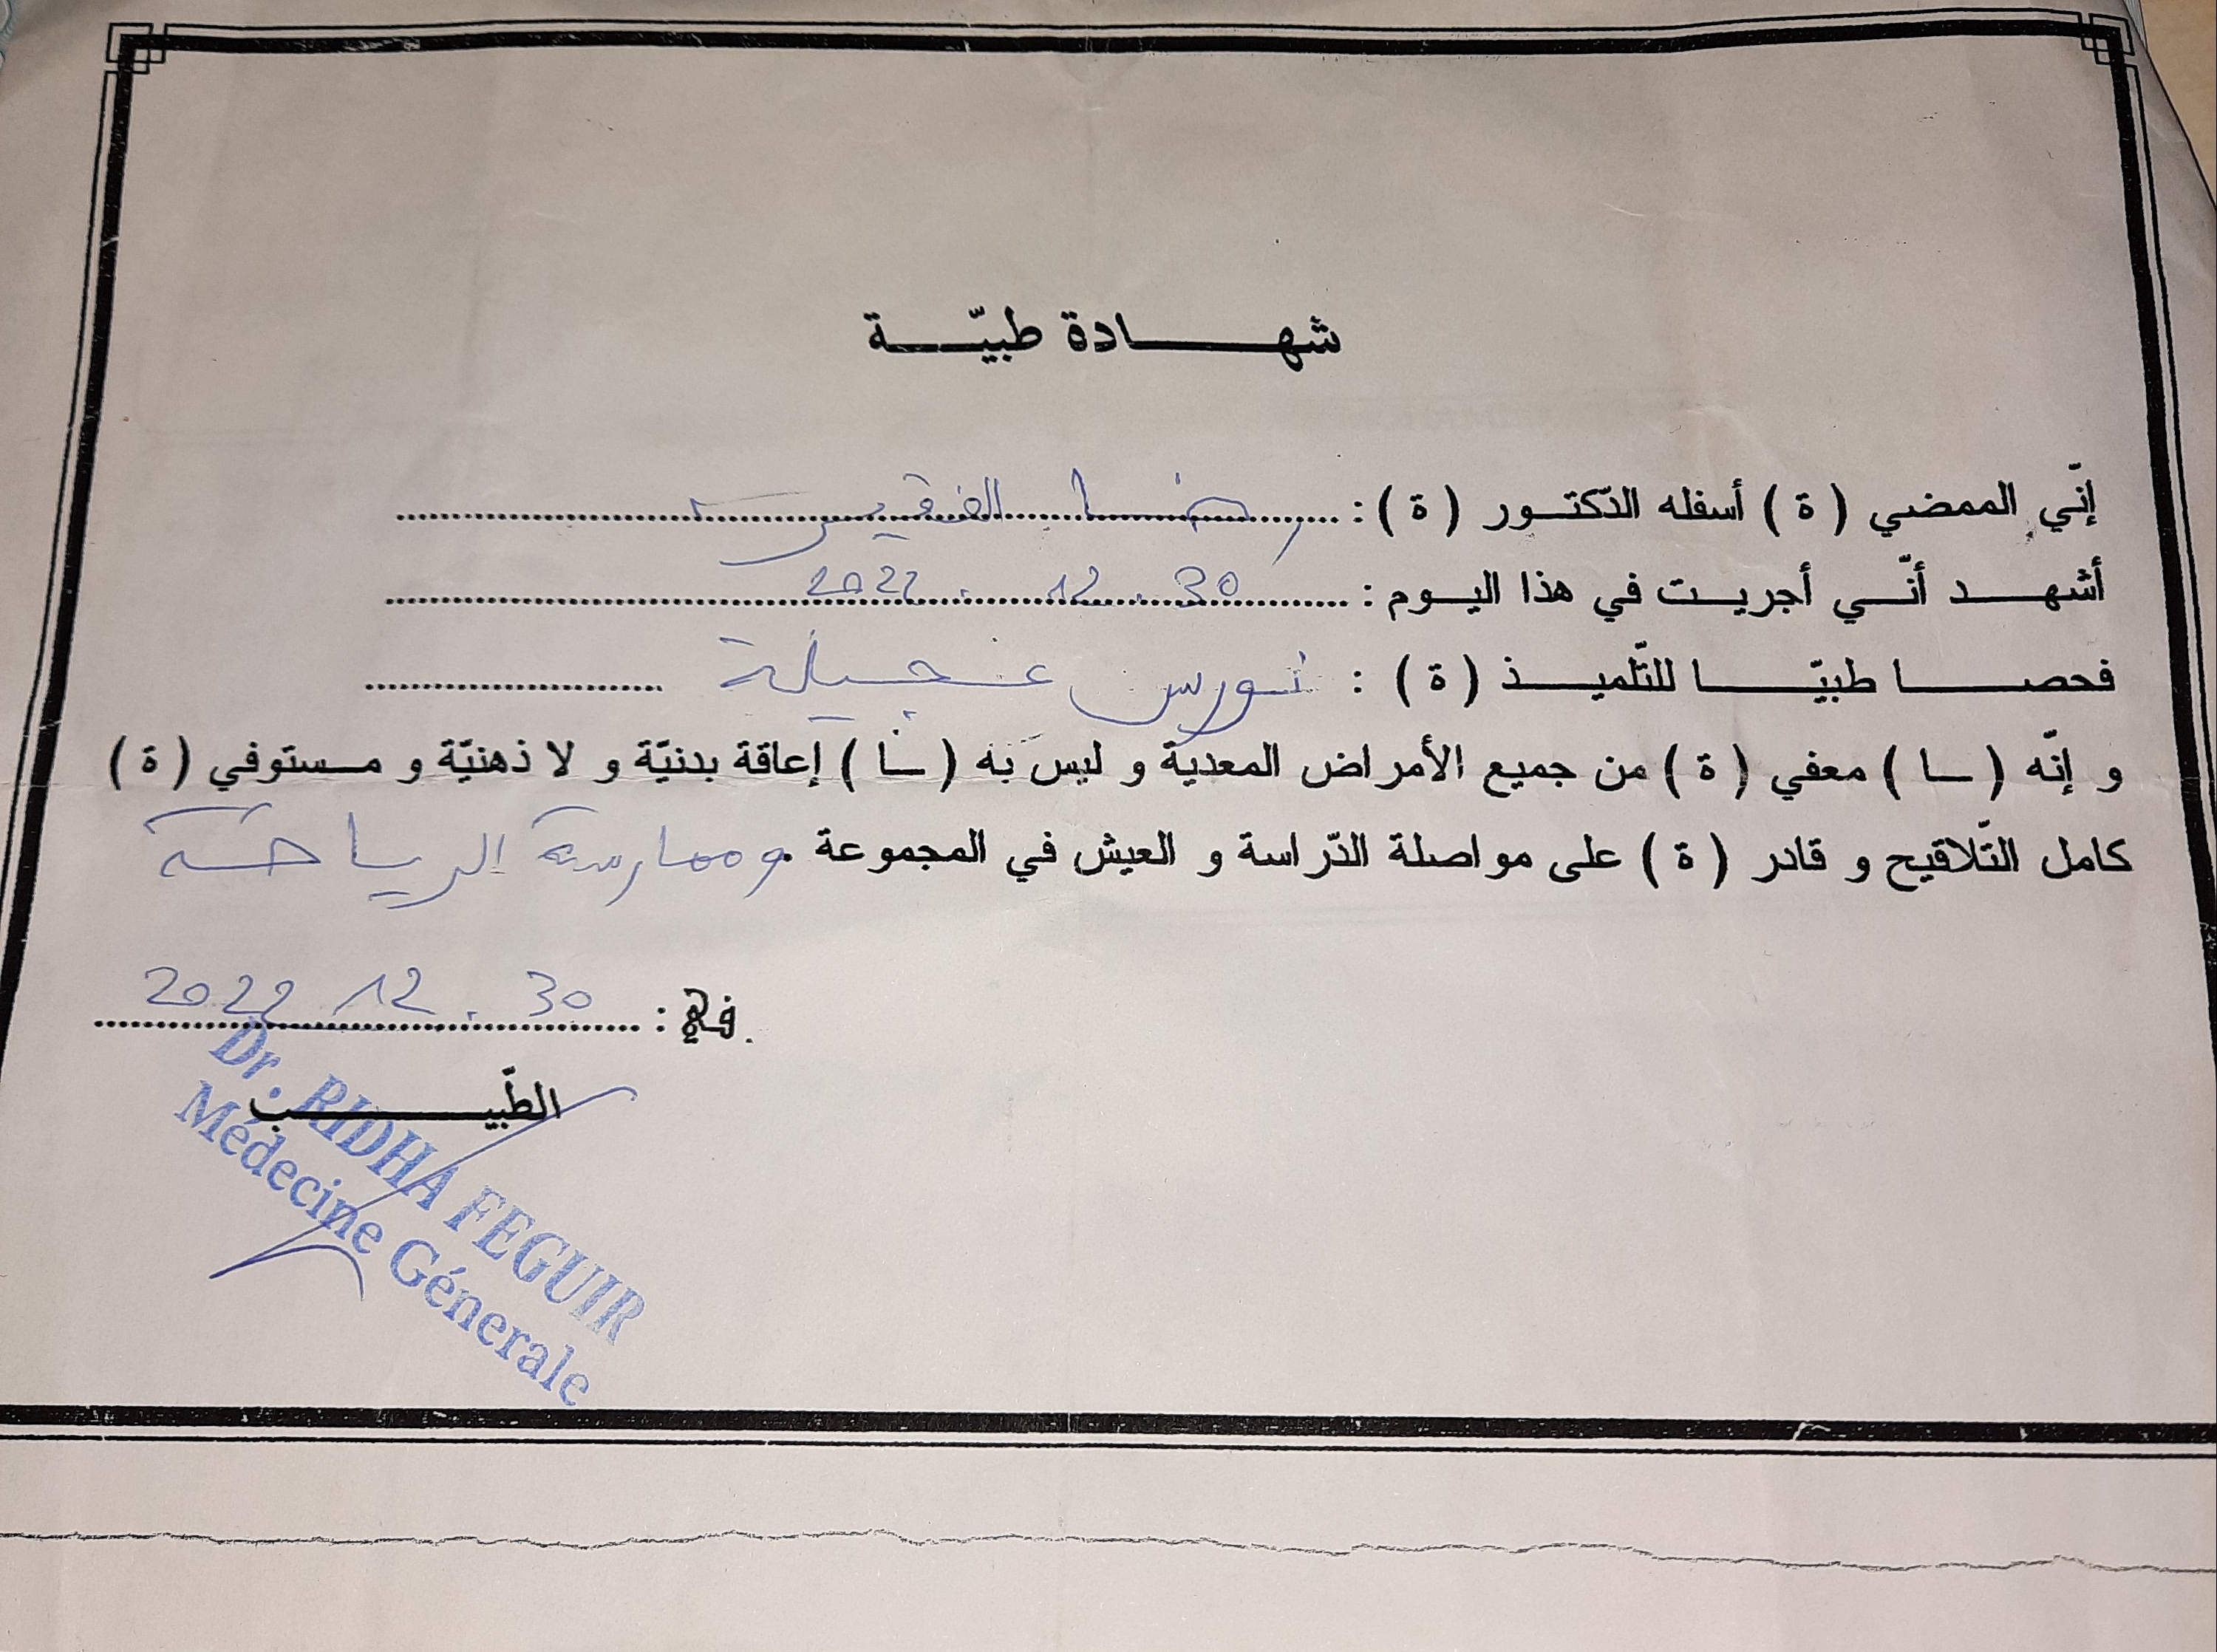 شهادة طبيّة
إنّي الممضي ( ة ) أسفله الدّكتور ( ة ) : رضا الفقير
أشهد أنّي أجريت في هذا اليوم : 30 . 12 . 2022
فحصا طبيّا للتّلميذ ( ة ) : نورس عجيلة
و إنّه ( ـا ) معفي ( ة ) من جميع الأمراض المعدية و ليس به ( ـا ) إعاقة بدنيّة و لا ذهنيّة و مستوفي ( ة )
كامل التّلاقيح و قادر ( ة ) على مواصلة الدّراسة و العيش في المجموعة . وممارسة الرياضة
في : 30 . 12 2022
الطّبيب
Dr. RIDHA FEGUIR
Médecine Génerale